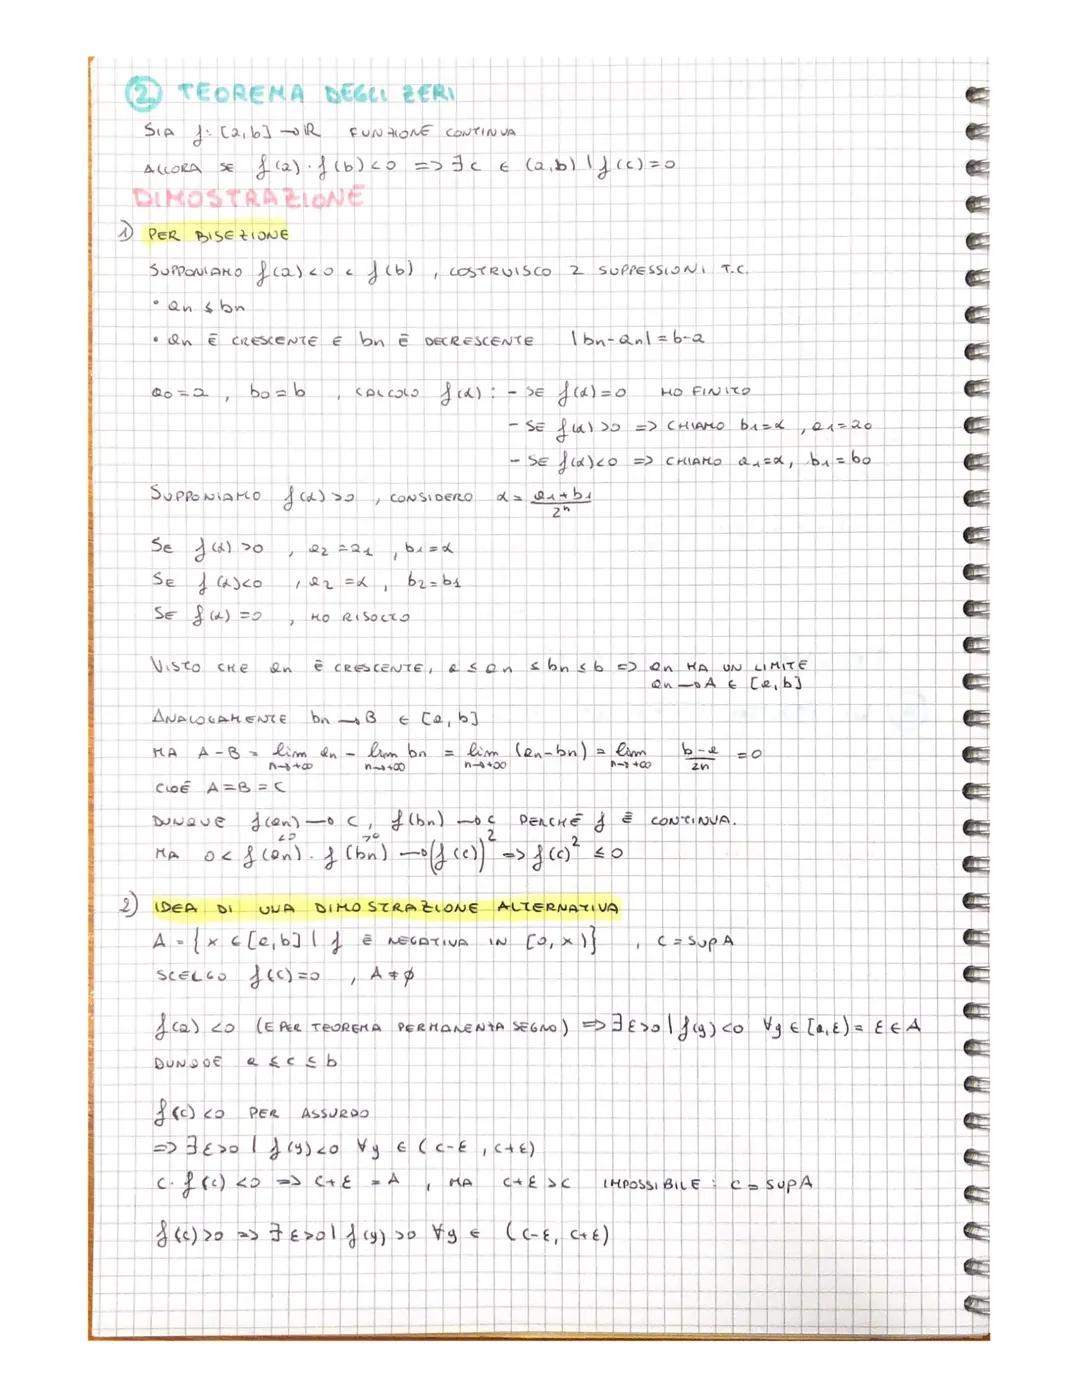 ② TEOREMA DEGLI ZERI
SIA f: [a,b] → ℝ FUNZIONE CONTINUA
ALLORA SE f(a)·f(b)<0 => ∃c ∈ (a,b) | f(c)=0
DIMOSTRAZIONE
1) PER BISEZIONE
SUPPONIAMO f(a)<0< f(b), COSTRUISCO 2 SUPPESSIONI T.C.
• an ≤ bn
• an È CRESCENTE E bn È DECRESCENTE |bn-an|=b-a
a0=a, b0=b, CALCOLO f(α): - SE f(α)=0 HO FINITO
- SE f(α)>0 => CHIAMO b1=α, a1=a0
- SE f(α)<0 => CHIAMO a1=α, b1=b0
SUPPONIAMO f(α)>0, CONSIDERO α = (a1+b1)/2ⁿ
SE f(α)>0, a2=a1, b1=α
SE f(α)<0, a2=α, b2=b1
SE f(α)=0, HO RISOLTO
VISTO CHE an È CRESCENTE, a≤an≤bn≤b => an HA UN LIMITE
an → A ∈ [a,b]
ANALOGAMENTE bn → B ∈ [a,b]
MA A-B = lim n→+∞ an - lim n→+∞ bn = lim n→+∞ (an-bn) = lim n→+∞ (b-a)/2n = 0
CIOÈ A=B=C
DUNQUE f(an) → c, f(bn) → c PERCHÉ f È CONTINUA.
<0 >0
MA 0< f(an)·f(bn) → (f(c))² => f(c)² ≤0
2) IDEA DI UNA DIMOSTRAZIONE ALTERNATIVA
A = {x ∈ [a,b] | f È NEGATIVA IN [0,x)}, C=SUPA
SCELGO f(c)=0, A≠∅
f(a)<0 (E PER TEOREMA PERMANENZA SEGNO) => ∃ε>0 | f(y)<0 ∀y ∈ [a,ε) = ε∈A
DUNQUE a≤c≤b
f(c)<0 PER ASSURDO
=> ∃ε>0 | f(y)<0 ∀y ∈ (c-ε, c+ε)
c. f(c)<0 => c+ε = A, MA c+ε>c IMPOSSIBILE: c=SUPA
f(c)>0 => ∃ε>0 | f(y)>0 ∀y ∈ (c-ε, c+ε)